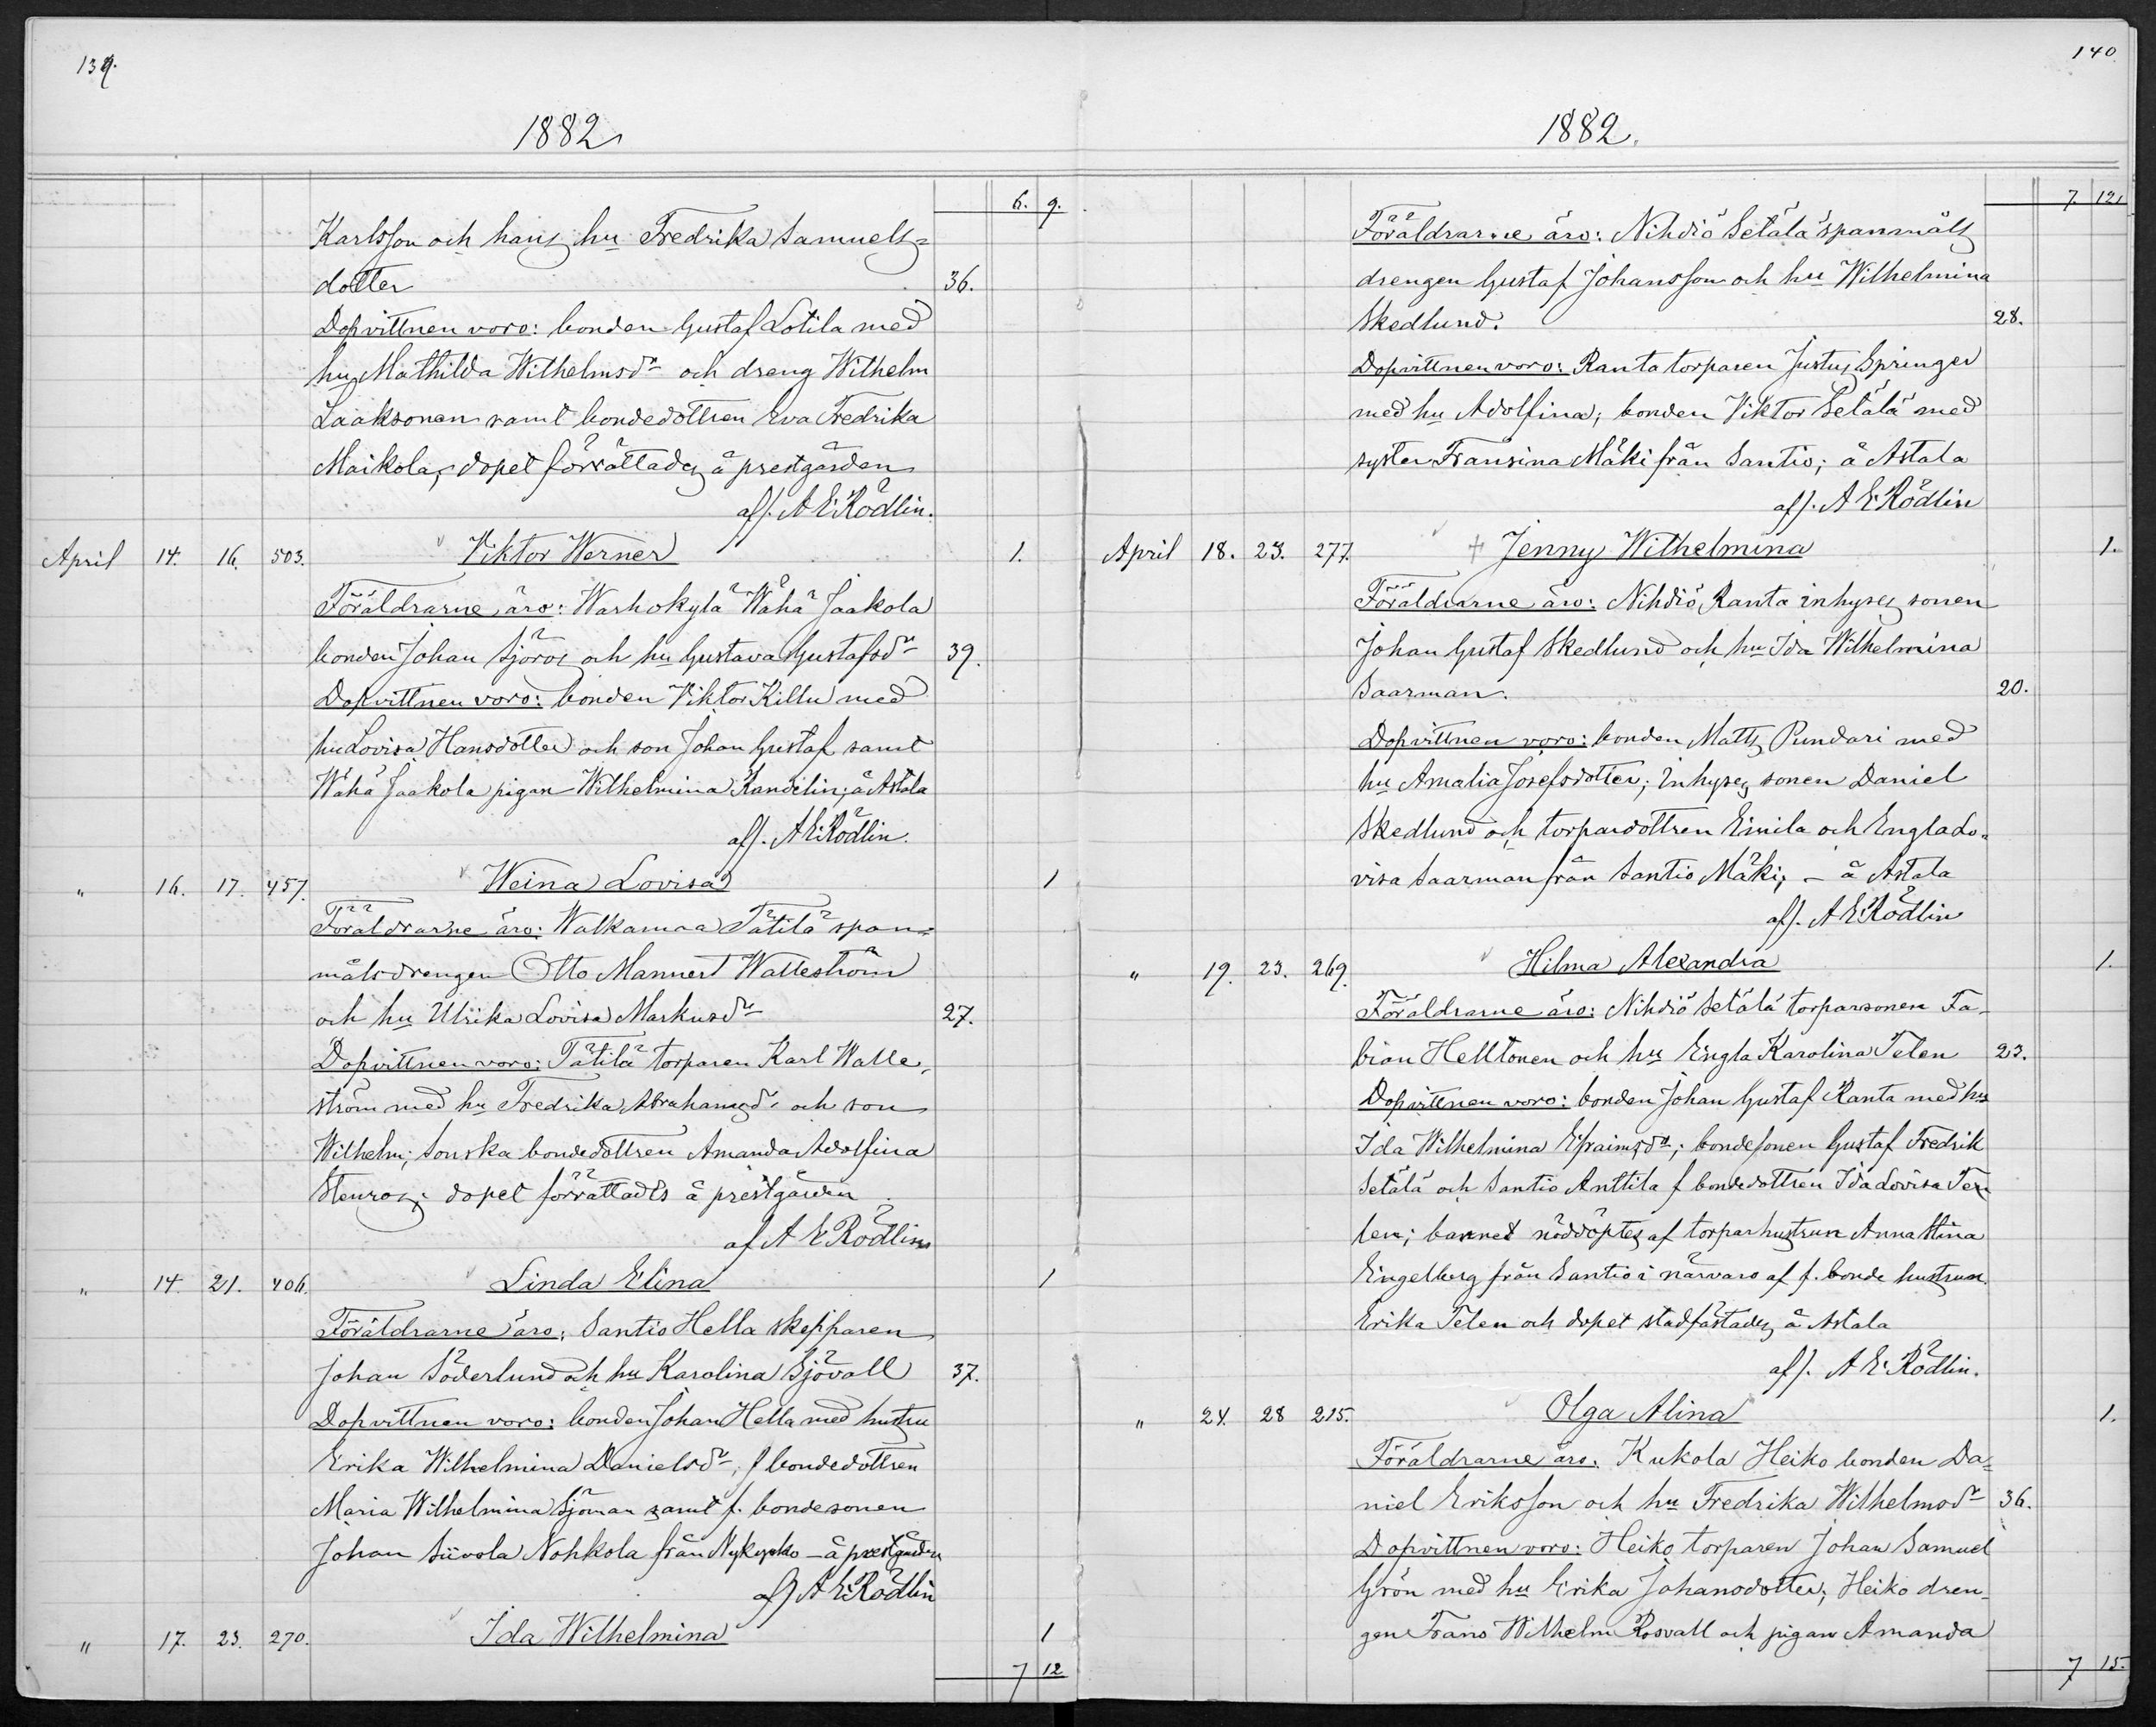 139.
1882
6. 9.
Karlsson och hans hu Fredrika Samuels=
dotter 36.
Dopvittnen voro: bonden Gustaf Lotila med
hu Mathilda Wilhelmsdr och dreng Wilhelm
Laaksonen samt bondedottren Eva Fredrika
Maikola; dopet förrättades å prestgården
af J. A E: Rödlin.
April 14. 16. 503. Viktor Werner 1.
Föräldrarne äro: Warhokylä Wähä Jaakola
bonden Johan Sjöros och hu Gustava Gustafsdr 39.
Dopvittnen voro: bonden Viktor Killu med
hu Lovisa Hansdotter och son Johan Gustaf samt
Wähä Jaakola pigan Wilhelmina Kandelin; å Astala
af J. A E: Rödlin.
" 16. 17. 457. Weina Lovisa 1
Föräldrarne äro: Walkamaa Tätilä span=
målsdrengen Otto Mannert Walleström
och hu Ulrika Lovisa Markusdr 27.
Dopvittnen voro: Tätilä torparen Karl Walle,
ström med hu Fredrika Abrahamsdr och son
Wilhelm; Sonska bondedottren Amanda Adolfina
Stenros; dopet förrättades å prestgården
af A E Rödlin
" 14. 21. 406. Linda Elina 1
Föräldrarne äro: Santio Hella skepparen
Johan Söderlund och hu Karolina Sjövall 37.
Dopvittnen voro: bonden Johan Hella med hustru
Erika Wilhelmina Danielsdr; f bondedottren
Maria Wilhelmina Sjöman samt f. bondesonen
Johan Siivola Nohkola från Nykyrko - å prestgården
af J A E: Rödlin
" 17. 23. 270. Ida Wilhelmina 1
7 12
140
1882.
7. 12.
Föräldrarne äro: Nihdiö Setälä spanmåls
drengen Gustaf Johansson och hu Wilhelmina
Skedlund. 28.
Dopvittnen voro: Ranta torparen Justus Springer
med hu Adolfina; bonden Viktor Setälä med
syster Fransina Mäki från Santio; å Astala
af J. A E: Rödlin
April 18. 23. 277. † Jenny Wilhelmina 1.
Föräldrarne äro: Nihdiö Ranta inhyses sonen
Johan Gustaf Skedlund och hu Ida Wilhelmina
Saarman. 20.
Dopvittnen voro: bonden Matts Pundari med
hu Amalia Josefsdotter; Inhyses sonen Daniel
Skedlund och torpardottren Emila och Engla Lo=
visa Saarman från Santio Mäki; - å Astala
af J. A E: Rödlin
" 19. 23. 269. Hilma Alexandra 1.
Föräldrarne äro: Nihdiö Setälä torparsonen Fa-
bian Helltonen och hu Engla Karolina Telen 23.
Dopvittnen voro: bonden Johan Gustaf Ranta med hu
Ida Wilhelmina Efraimsdr; bondesonen Gustaf Fredrik
Setälä och Santio Anttila f bondedottren Ida Lovisa Te
len; barnet nöddöptes af torparhustrun Anna Stina
Engelberg från Santio i närvaro af f. bonde hustrun
Erika Telen och dopet stadfästades å Astala
af J. A E: Rödlin.
" 24. 28 215. Olga Alina 1.
Föräldrarne äro: Kukola Heiko bonden Da=
niel Eriksson och hu Fredrika Wilhelmsdr 36.
Dopvittnen voro: Heiko torparen Johan Samuel
Grön med hu Erika Johansdotter; Heiko dren-
gen Frans Wilhelm Rosvall och pigan Amanda
7 15.